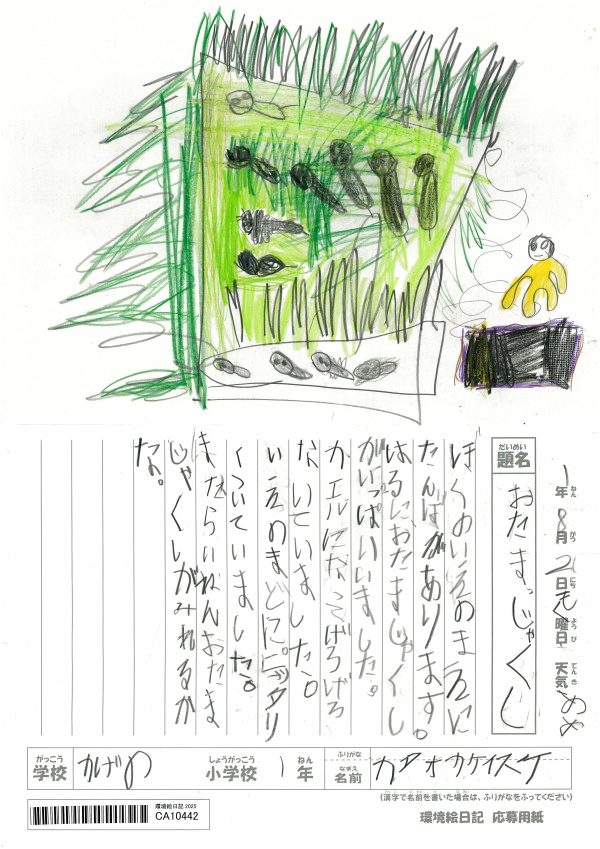 1年8月21日もく曜日 天気 あめ
ねん がつ にち ようび てんき
だいめい
題名
おたまっじゃくし
ぼくのいえのまえに
たんぼがあります。
はるにおたまじゃくし
がいっぱいいました。
カエルになってげろげろ
ないていました。
いえのまどに。ピッタリ
くついていました。
まだらいねんおたま
じゃくしがみれるか
な。
がっこう
学校
かげの
しょうがっこう
小学校
1
ねん
年
ふりがな
なまえ
名前
(漢字で名前を書いた場合は、ふりがなをふってください)
環境絵日記 2025
CA10442
環境絵日記 応募用紙